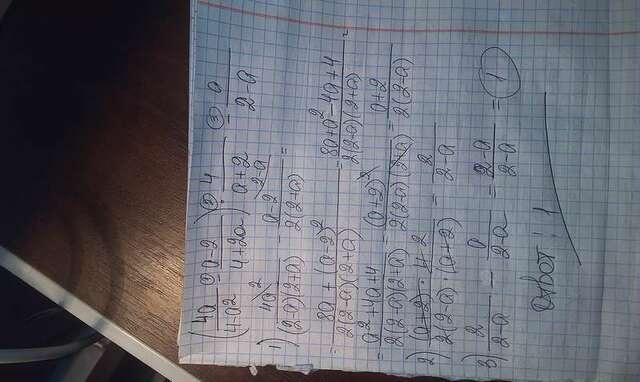 (4a/4-a² ① - a-2/4+2a) ② · 4/a+2 ③ - a/2-a
1) 4a²/(2-a)(2+a) - a-2 2-a/2(2+a) =
= 8a+(a-2)²/2(2-a)(2+a) = 8a+a²-4a+4/2(2-a)(2+a) =
= a²+4a+4/2(2-a)(2+a) = (a+2)²/2(2-a)(2+a) = a+2/2(2-a)
2) (a+2)·4 2/2(2-a)·(a+2) = 2/2-a
3) 2/2-a - a/2-a = 2-a/2-a = 1
Ответ: 1